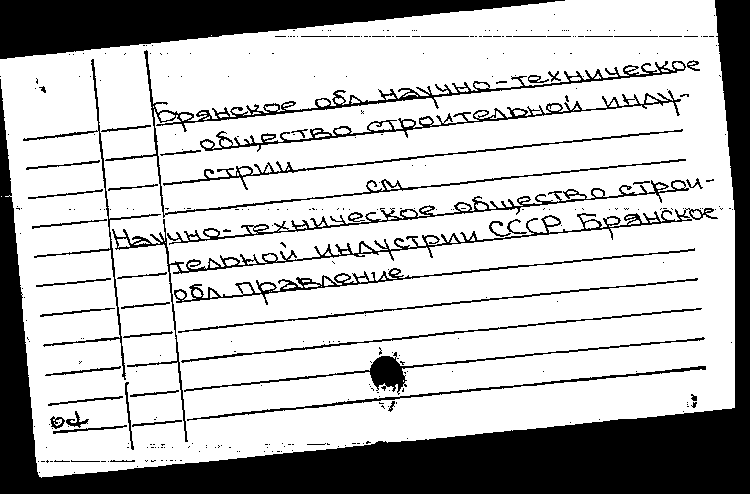 Брянское обл. научно-техническое
общество строительной инду-
стрии
см.
Научно-техническое общество строи-
тельной индустрии СССР. Брянское
обл. правление.